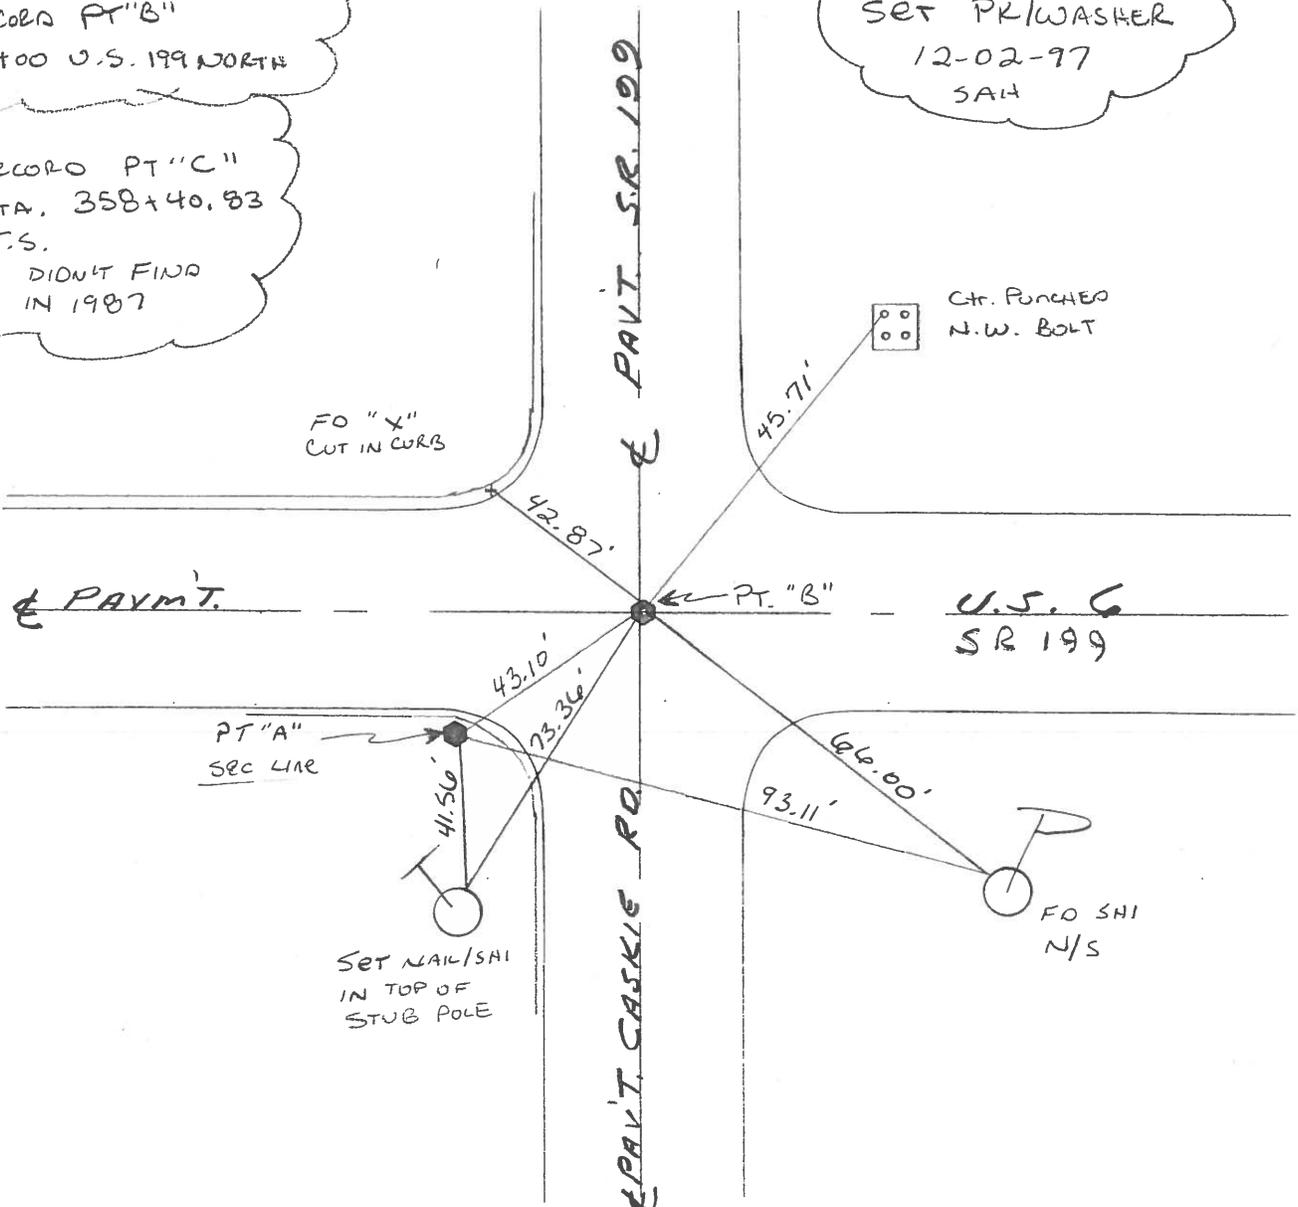 CORD PT "B"
+00 U.S. 199 NORTH
ECORD PT "C"
TA. 358+40.83
T.S.
DIDN'T FIND
IN 1987
SET PK/WASHER
12-02-97
SAH
PAV'T. S.R. 199
℄
CH. PUNCHED
N.W. BOLT
45.71'
FD "X"
CUT IN CURB
42.87'
℄ PAVM'T.
PT. "B"
U.S. 6
SR 199
43.10'
73.36'
PT "A"
SEC LINE
41.56'
66.00'
93.11'
SET NAIL/SHI
IN TOP OF
STUB POLE
FD SHI
N/S
℄ PAV'T. CASKIE RD.